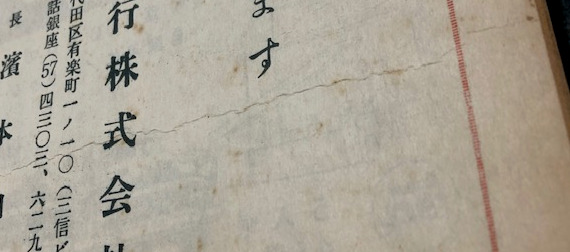 ます
行株式会社
代田区有楽町一ノ一〇(三信ビ
話銀座(57)四三〇三、六二九
長
濱本